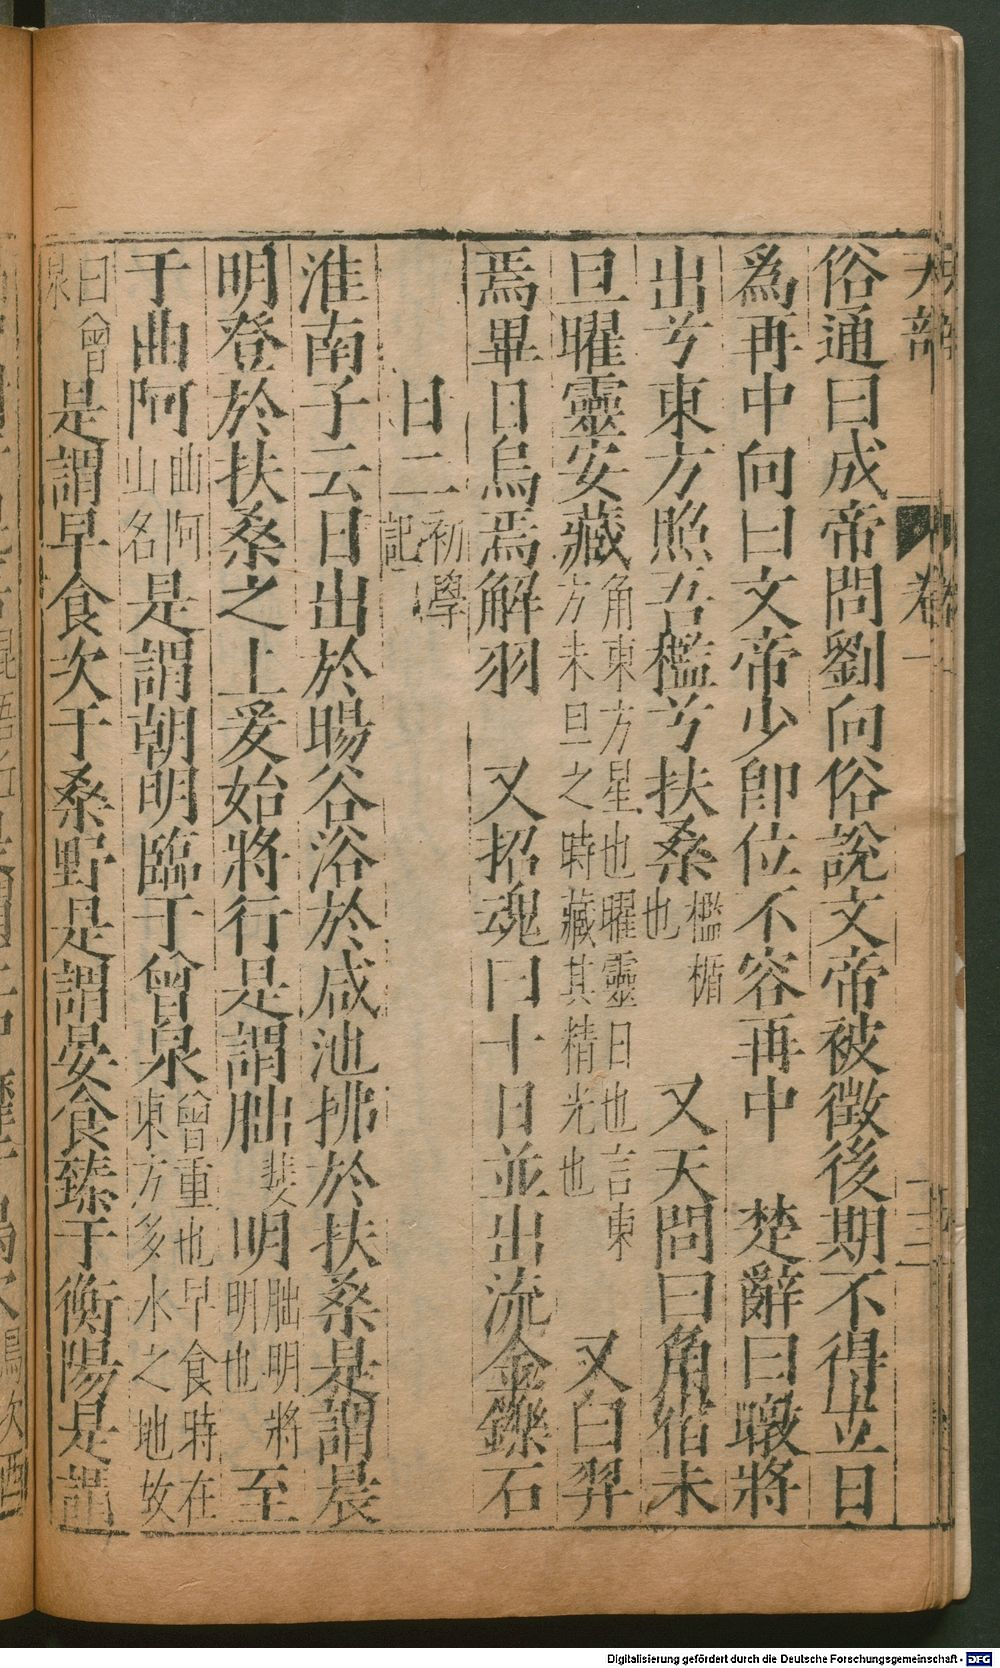 天部 卷一
俗通曰成帝問劉向俗說文帝被徵後期不得立日
為再中向曰文帝少卽位不容再中 楚辭曰暾將
出兮東方照吾檻兮扶桑檻楯也 又天問曰角宿未
旦曜靈安藏角東方星也曜靈日也言東方未旦之時藏其精光也 又曰羿
焉畢日烏焉解羽 又招魂曰十日並出流金鑠石
日二初學記
淮南子云日出於暘谷浴於咸池拂於扶桑是謂晨
明登於扶桑之上爰始將行是謂朏斐明朏明將明也至
于曲阿曲阿山名是謂朝明臨于曾泉曾重也早食時在東方多水之地故
曰曾泉是謂早食次于桑野是謂晏食臻于衡陽是謂
Digitalisierung gefördert durch die Deutsche Forschungsgemeinschaft - DFG